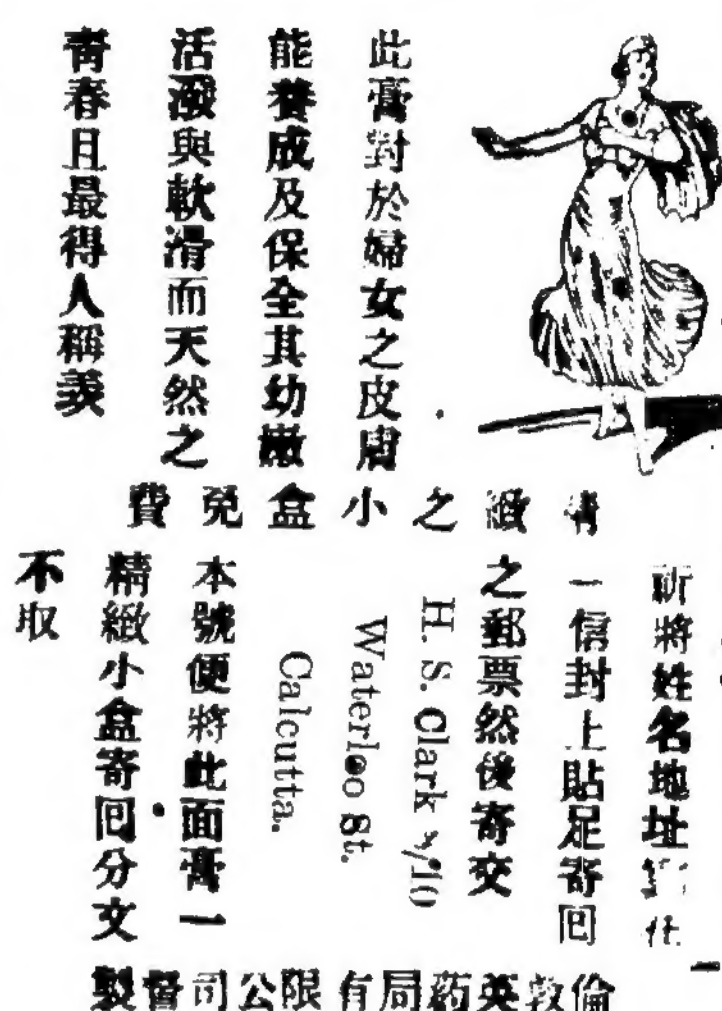 此膏對於婦女之皮膚
能養成及保全其幼嫩
活潑與軟滑而天然之
青春且最得人稱羨
精緻之小盒免費
祈將姓名地址
一信封上貼足寄回
之郵票然後寄交
H. S. Clark
Waterloo St.
Calcutta.
本號便將此面膏一
精緻小盒寄回分文
不取
倫敦英葯局有限公司督製